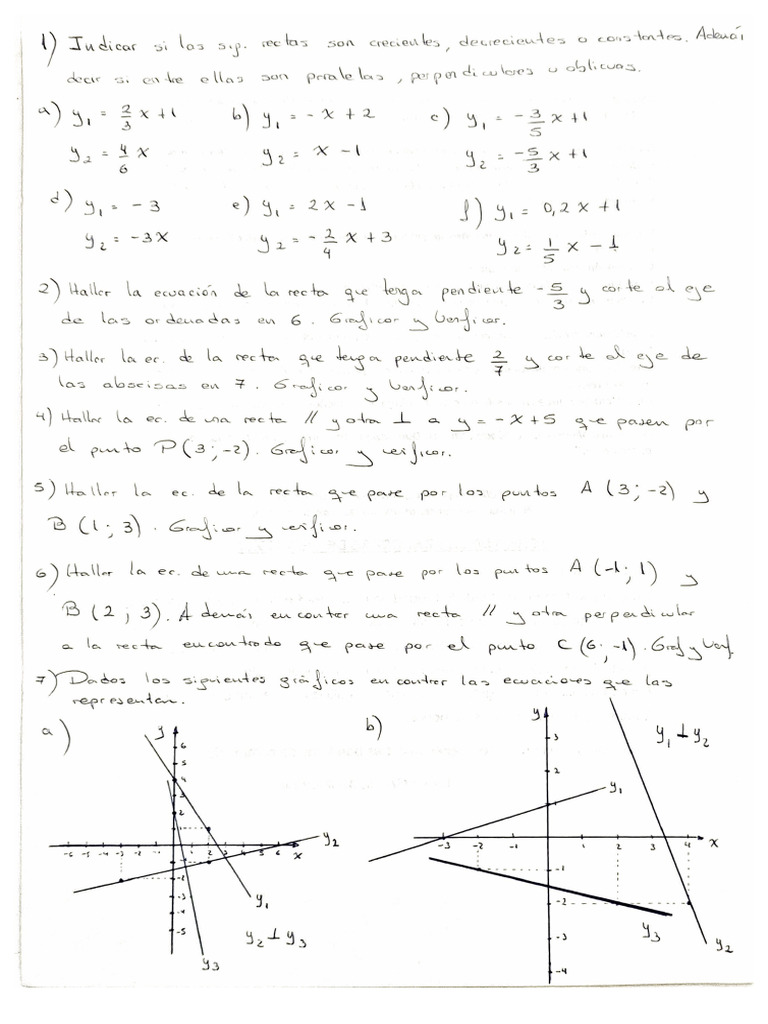 1) Indicar si las sig. rectas son crecientes, decrecientes o constantes. Ademá,
decir si entre ellas son paralelas, perpendiculares u oblicuas.
a) y₁ = 2/3 x + 1 b) y₁ = - x + 2 c) y₁ = - 3/5 x + 1
y₂ = 4/6 x y₂ = x - 1 y₂ = -5/3 x + 1
d) y₁ = - 3 e) y₁ = 2x - 1 f) y₁ = 0,2 x + 1
y₂ = -3x y₂ = - 2/4 x + 3 y₂ = 1/5 x - 1
2) Haller la ecuación de la recta que tenga pendiente - 5/3 y corte al eje
de las ordenadas en 6. Graficar y Verificar.
3) Haller la ec. de la recta que tenga pendiente 2/7 y corte al eje de
las absisas en 7. Graficar y Verificar.
4) Haller la ec. de una recta // y otra ⊥ a y = - x + 5 que pasen por
el punto P(3;-2). Graficar y verificar.
5) Haller la ec. de la recta que pase por los puntos A (3;-2) y
B (1;3). Graficar y verificar.
6) Haller la ec. de una recta que pase por los puntos A (-1;1) y
B (2;3). Además encontrar una recta // y otra perpendicular
a la recta encontrada que pase por el punto C (6;-1). Graf y Verf.
7) Dados los siguientes gráficos encontrar las ecuaciones que las
representan.
a) y b) y
6 5 4 3 2 1
-6 -5 -4 -3 -2 -1 1 2 3 4 5 6 x
-1 -2 -3 -4 -5
y₂
y₁
y₂ ⊥ y₃
y₃
y₁ ⊥ y₂
3 2 1
y₁
-3 -2 -1 1 2 3 4 x
-1 -2 -3 -4
y₃
y₂